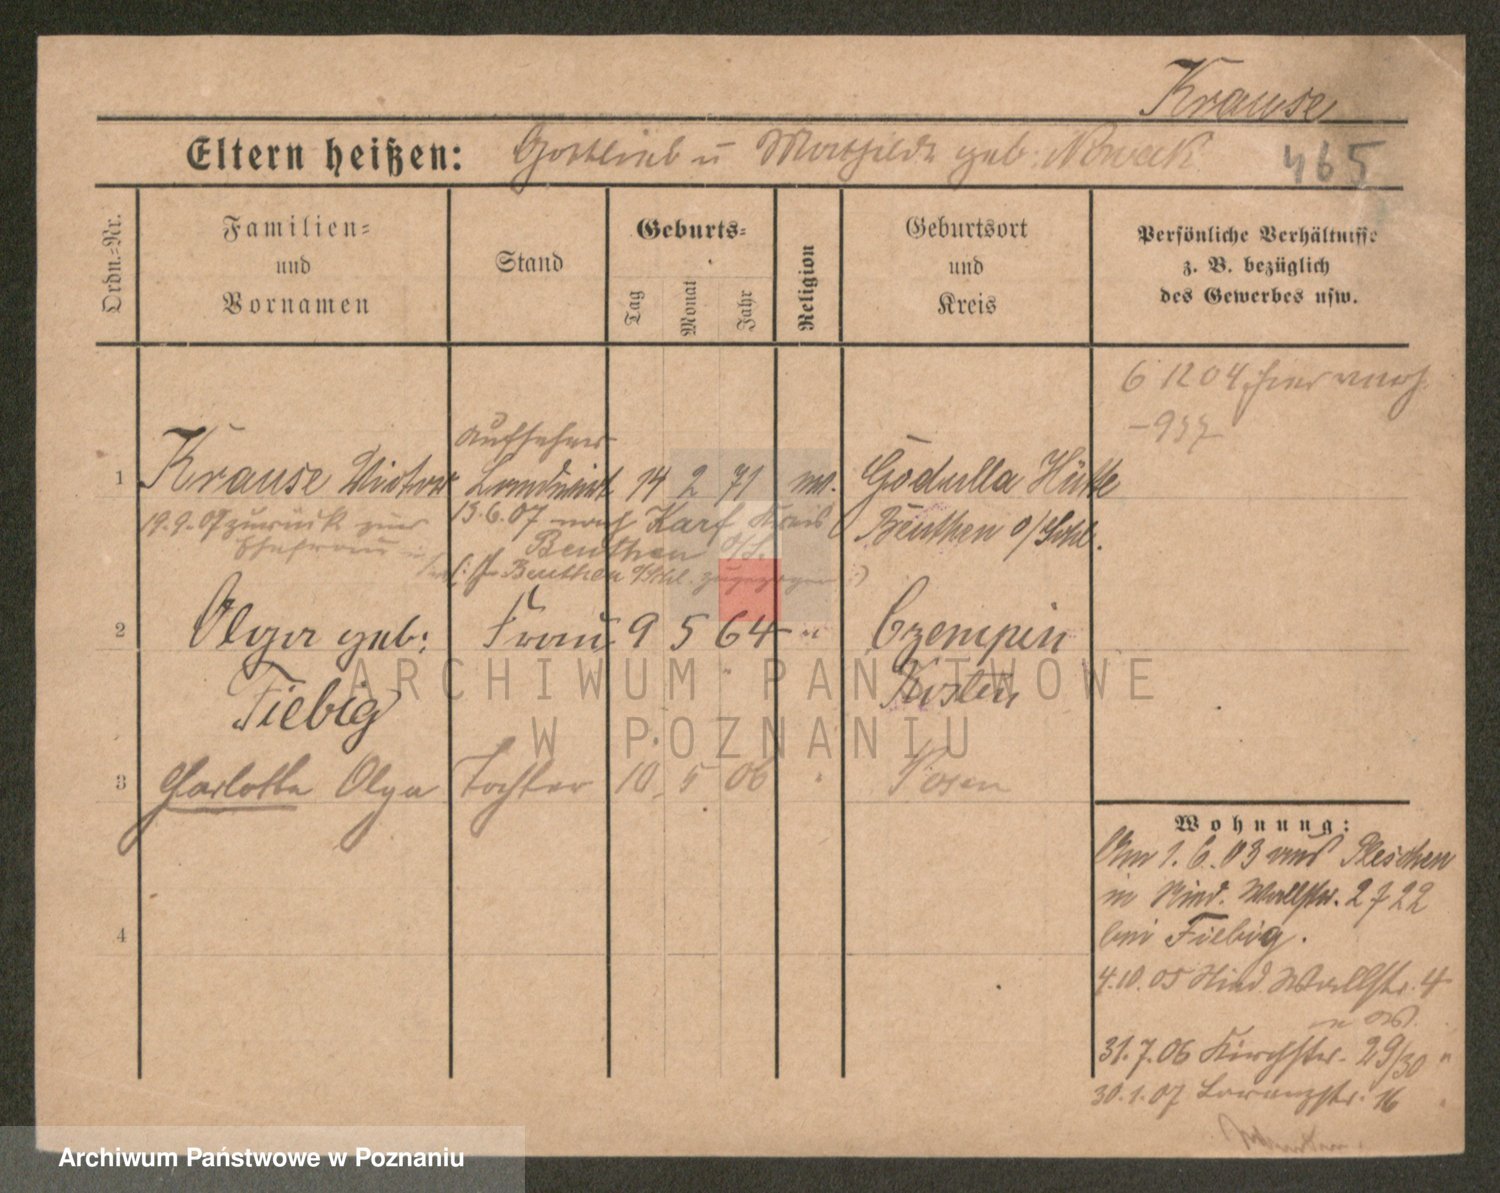 Krause
Eltern heißen: Gottlieb u Mathilde geb. Nowak
465
Ordn.-Nr.
Familien-
und
Vornamen
Stand
Geburts-
Tag
Monat
Jahr
Religion
Geburtsort
und
Kreis
Persönliche Verhältnisse
z. B. bezüglich
des Gewerbes usw.
6 12 04 hier
Aufseher
1 Krause Victor Landwirt 14 2 71 Godulla Hütte
19.9.07 zurück zur 13.6.07 nach Karf Kreis Beuthen o/Schl.
Ehefrau Beuthen O/S.
Beuthen zugezogen
2 Olga geb: Frau 9 5 64 " Czempin
Fiebig Kosten
3 Charlotte Olga Tochter 10 5 06 " Posen
4
Wohnung:
Am 1.6.03 aus Pleschen
in Wallstr. 2
bei Fiebig.
4.10.05 Wallstr. 4
31.7.06 Kirchstr. 29/30 "
30.1.07 16
ARCHIWUM PAŃSTWOWE
W POZNANIU
Archiwum Państwowe w Poznaniu